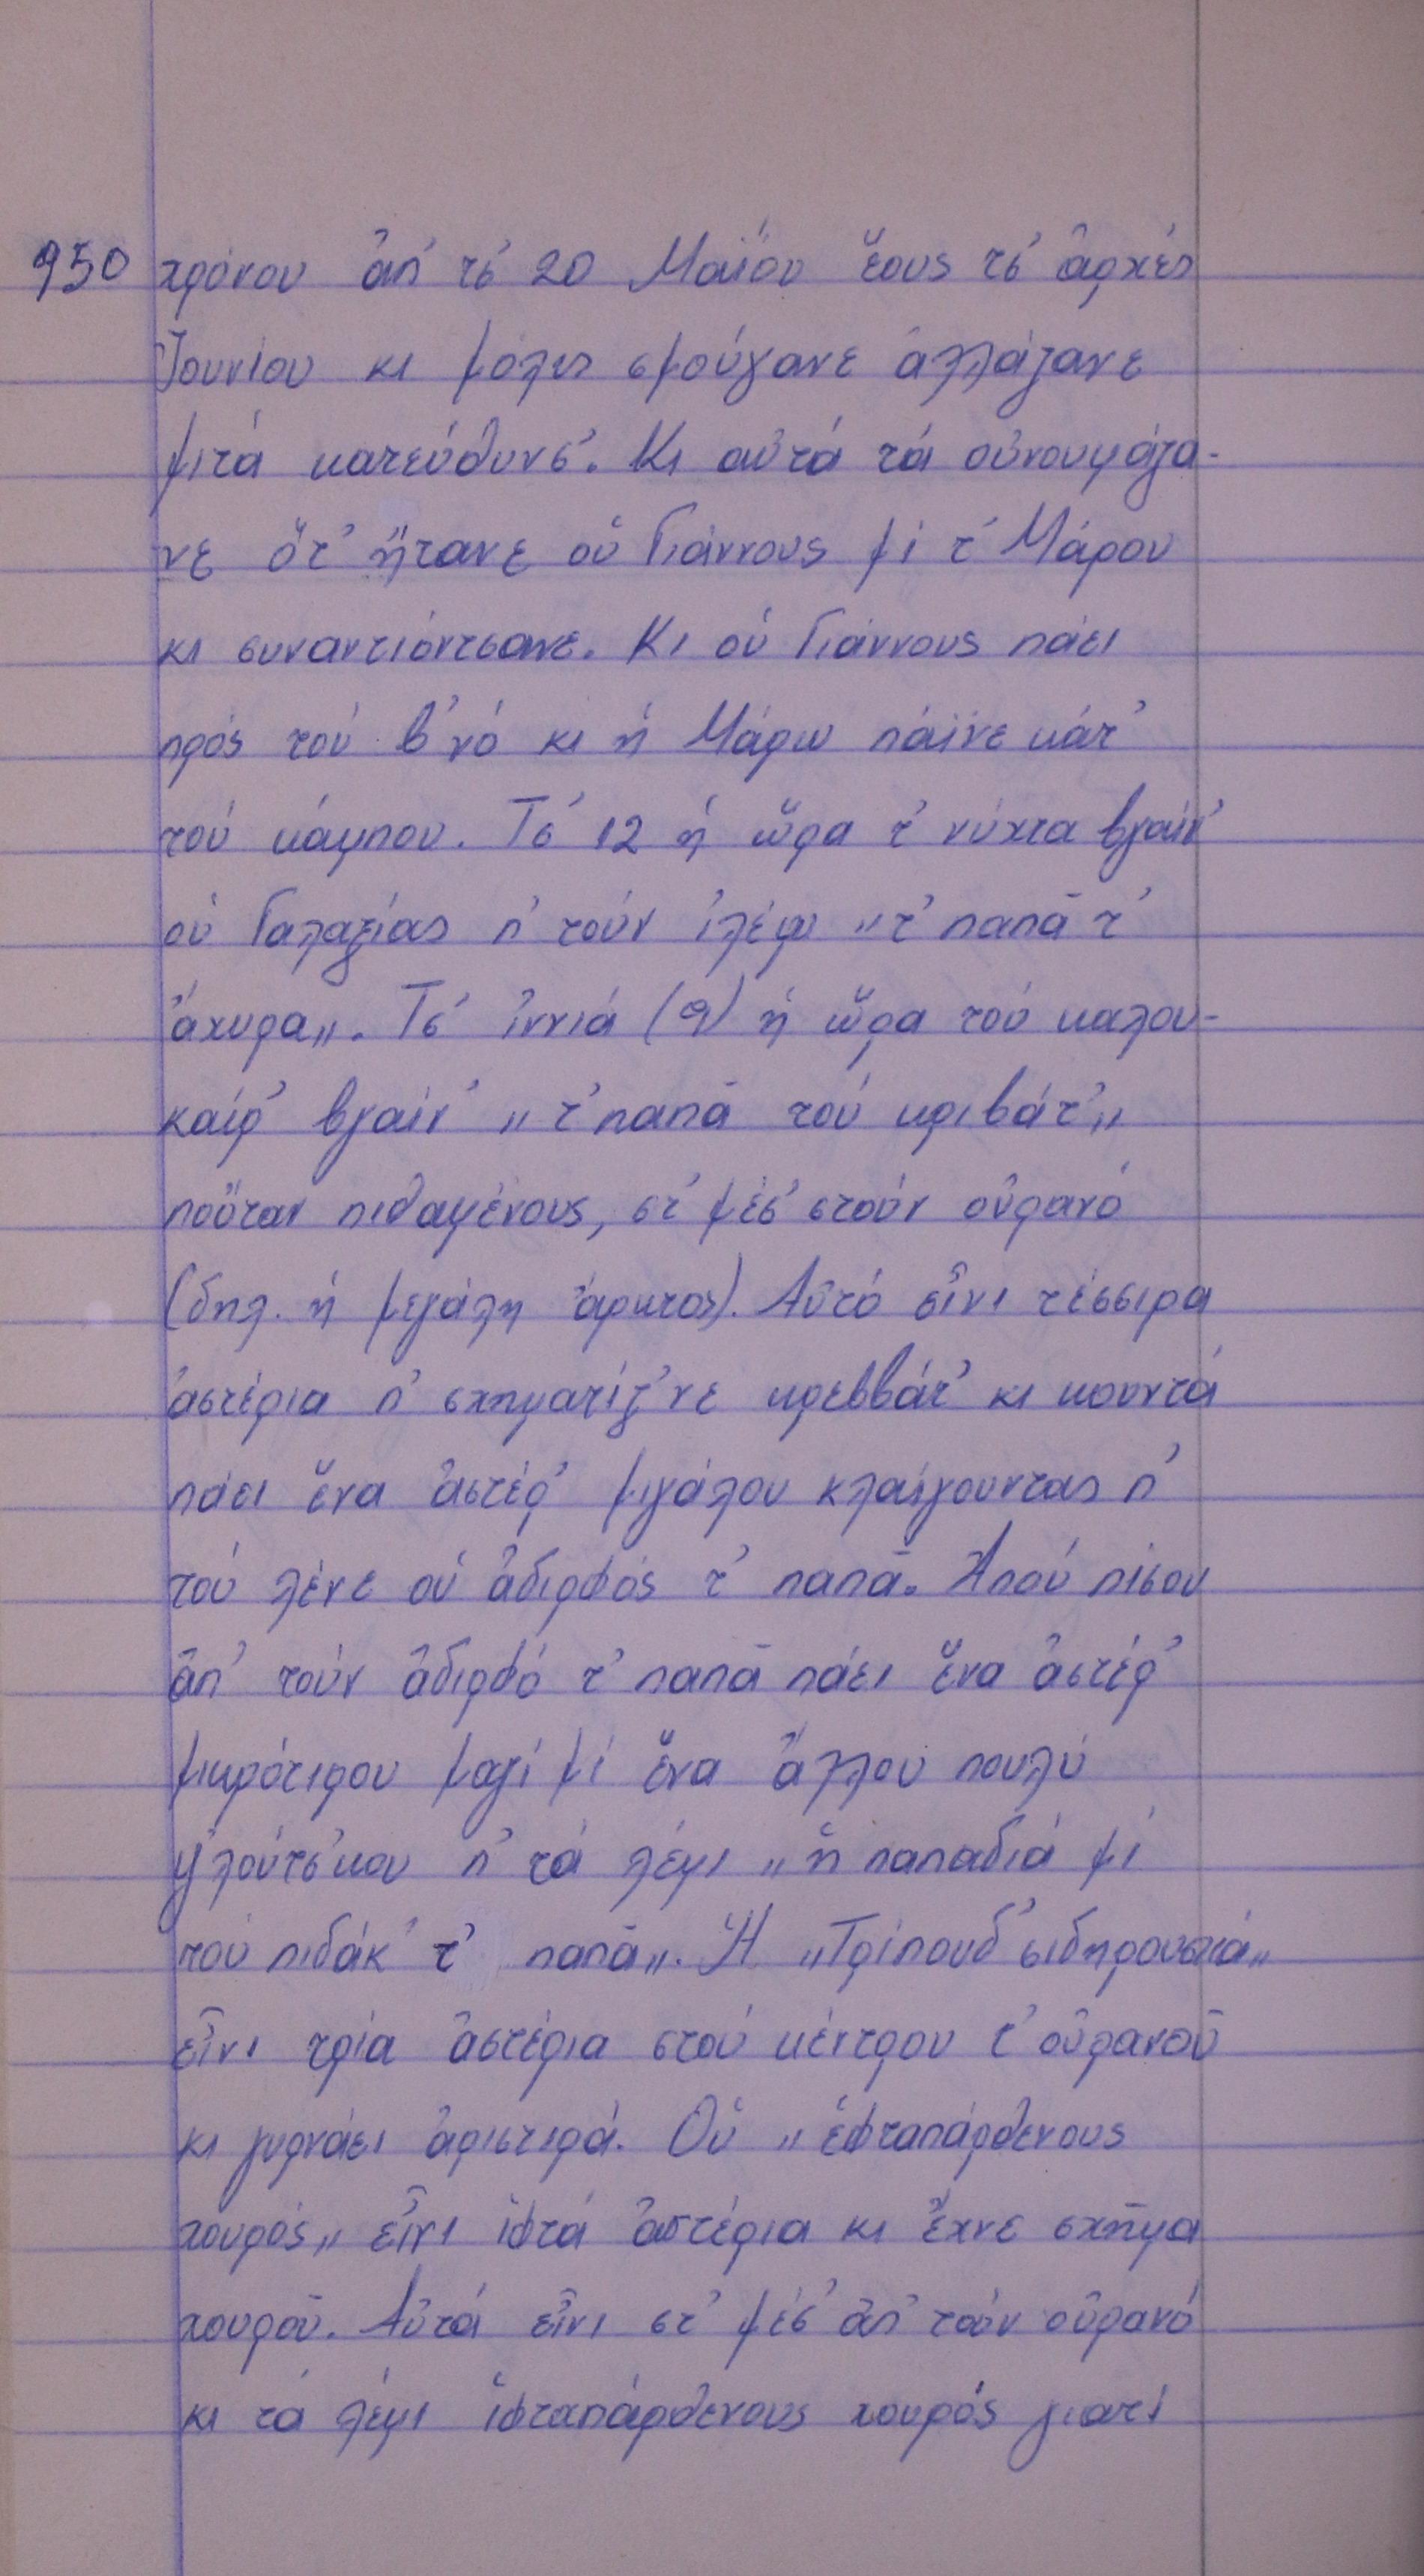 950 χρόνου ἀπ' τσ' 20 Μαΐου ἕους τσ' ἀρχές
Ἰουνίου κι μόλις σμούγανε ἀλλάζανε
μιτά κατεύθυνσ'. Κι αὐτά τά οὐνουμάζα-
νε ὅτ' ἤτανε οὑ Γιάννους μί τ' Μάρου
κι συναντιόντσανε. Κι οὑ Γιάννους πάει
πρός τού β'νό κι ἡ Μάρω πάϊνε κάτ'
τού κάμπου. Τσ' 12 ἡ ὥρα τ' νύχτα βγαίν'
οὑ Γαλαξίας π' τούν ἰλέμι „τ' παπᾶ τ'
ἄχυρα„. Τσ' ἰννιά (9) ἡ ὥρα τού καλου-
καίρ' βγαίν' „τ' παπᾶ τού κριβάτ'„
ποὔταν πιθαμένους, στ' μέσ' στούν οὐρανό
(δηλ. ἡ μεγάλη ἄρκτος). Αὐτό εἶνι τέσσιρα
ἀστέρια π' σχηματίζ'νε κρεββάτ' κι κουντά
πάει ἕνα ἀστέρ' μιγάλου κλαίγουντας π'
τού λένε οὑ ἀδιρφός τ' παπᾶ. Ἀπού πίσου
ἀπ' τούν ἀδιρφό τ' παπᾶ πάει ἕνα ἀστέρ'
μικρότιρου μαζί μί ἕνα ἄλλου πουλύ
ψ'λούτσ'κου π' τά λέμι „ἡ παπαδιά μί
τού πιδάκ' τ' παπᾶ„. Ἡ „Τρίπουδ' σιδηρουστιά„
εἶνι τρία ἀστέρια στού κέντρου τ' οὐρανοῦ
κι γυρνάει ἀριστιρά. Οὑ „ἑφταπάρθενους
χουρός„ εἶνι ἱφτά ἀστέρια κι ἔχνε σχῆμα
χουροῦ. Αὐτά εἶνι στ' μέσ' ἀπ' τούν οὐρανό
κι τά λέμι ἱφταπάρθενους χουρός γιατί